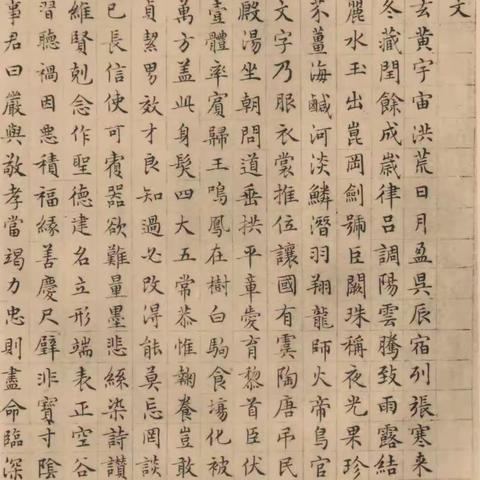 文
玄黃宇宙洪荒日月盈昃辰宿列張寒来
冬藏閏餘成歲律呂調陽雲騰致雨露結
麗水玉出崑岡劍號巨闕珠稱夜光果珍
芥薑海鹹河淡鱗潛羽翔龍師火帝鳥官
文字乃服衣裳推位讓國有虞陶唐吊民
殷湯坐朝問道垂拱平章愛育黎首臣伏
壹體率賓歸王鳴鳳在樹白駒食場化被
萬方盖此身髮四大五常恭惟鞠養豈敢
貞潔男效才良知過必改得能莫忘罔談
已長信使可覆器欲難量墨悲絲染詩讃
維賢剋念作聖德建名立形端表正空谷
習聽禍因惡積福緣善慶尺璧非寶寸陰
事君曰嚴與敬孝當竭力忠則盡命臨深